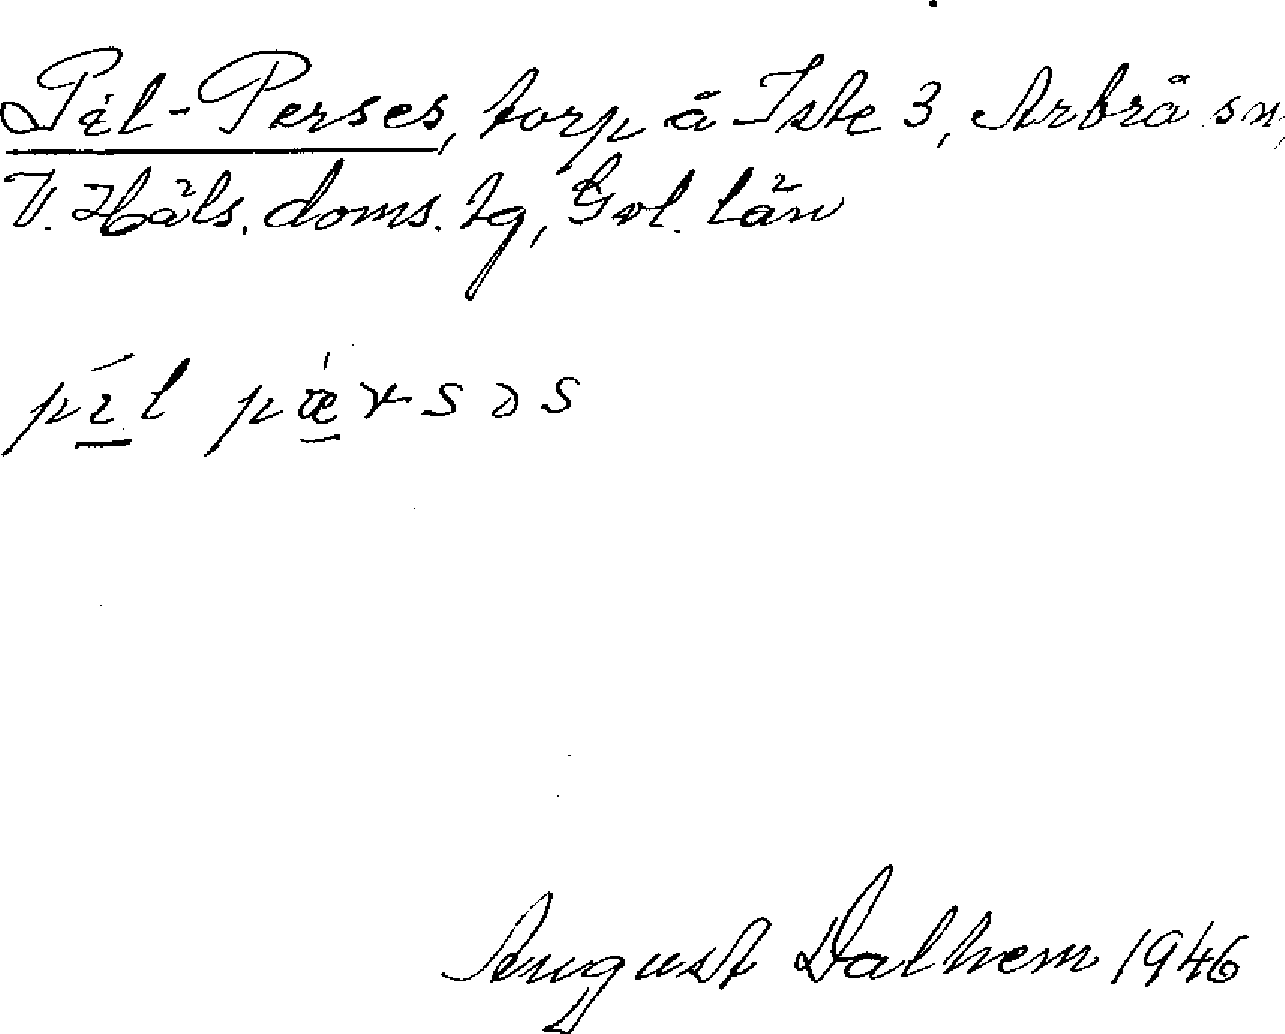 Pil-Perses, torp å Iste 3, Arbrå sn,
V. Häls. doms. lg, Gvl. län
pı̄l pæ̀rsəs
August Dalhem 1946